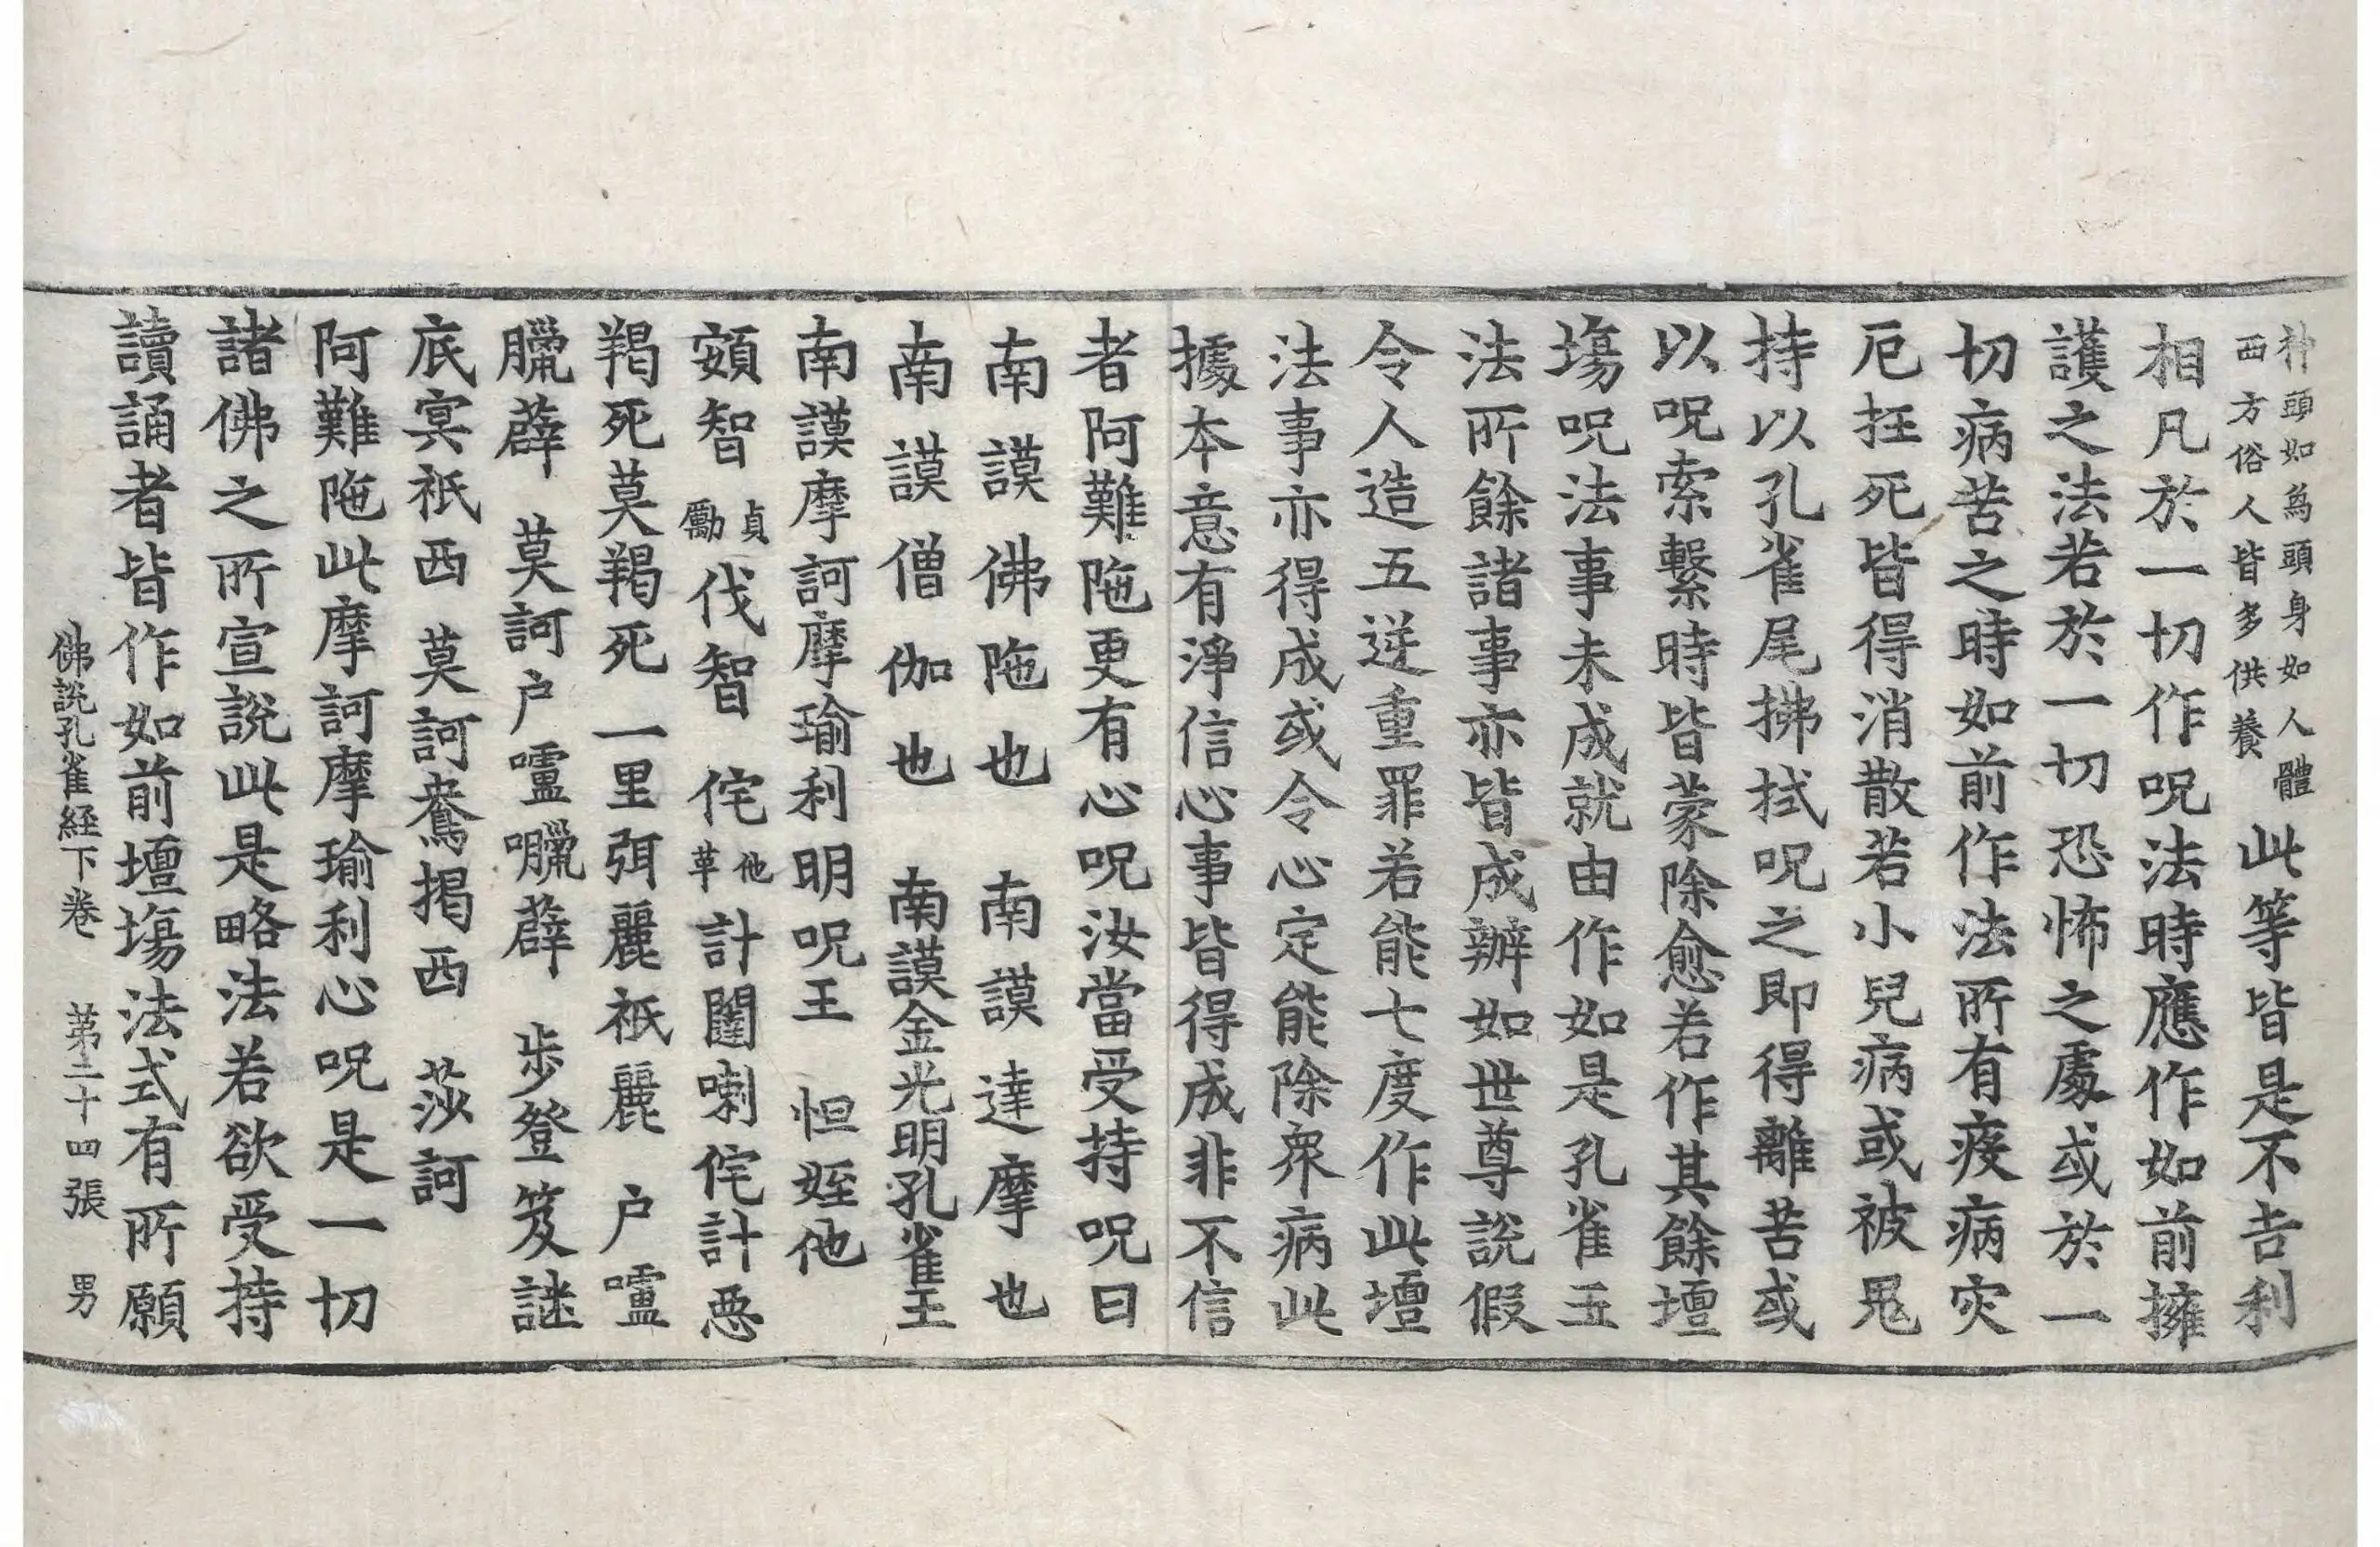 神頭如馬頭身如人體
西方俗人皆多供養
此等皆是不吉利
相凡於一切作呪法時應作如前擁
護之法若於一切恐怖之處或於一
切病苦之時如前作法所有疫病灾
厄抂死皆得消散若小兒病或被鬼
持以孔雀尾拂拭呪之即得離苦或
以呪索繫時皆蒙除愈若作其餘壇
塲呪法事未成就由作如是孔雀王
法所餘諸事亦皆成辦如世尊說假
令人造五逆重罪若能七度作此壇
法事亦得成或令心定能除衆病此
據本意有淨信心事皆得成非不信
者阿難陁更有心呪汝當受持呪曰
南謨佛陁也 南謨達摩也
南謨僧伽也 南謨金光明孔雀王
南謨摩訶摩瑜利明呪王 怛姪他
頞智貞勵伐智 侘他革計闥喇侘計惡
羯死莫羯死 一里弭麗祇麗 户嚧
臈薜 莫訶户嚧臈薜 步登笈謎
底㝠祇西 莫訶鴦揭西 莎訶
阿難陁此摩訶摩瑜利心呪是一切
諸佛之所宣說此是略法若欲受持
讀誦者皆作如前壇塲法式有所願
佛說孔雀經下卷 第二十四張 男